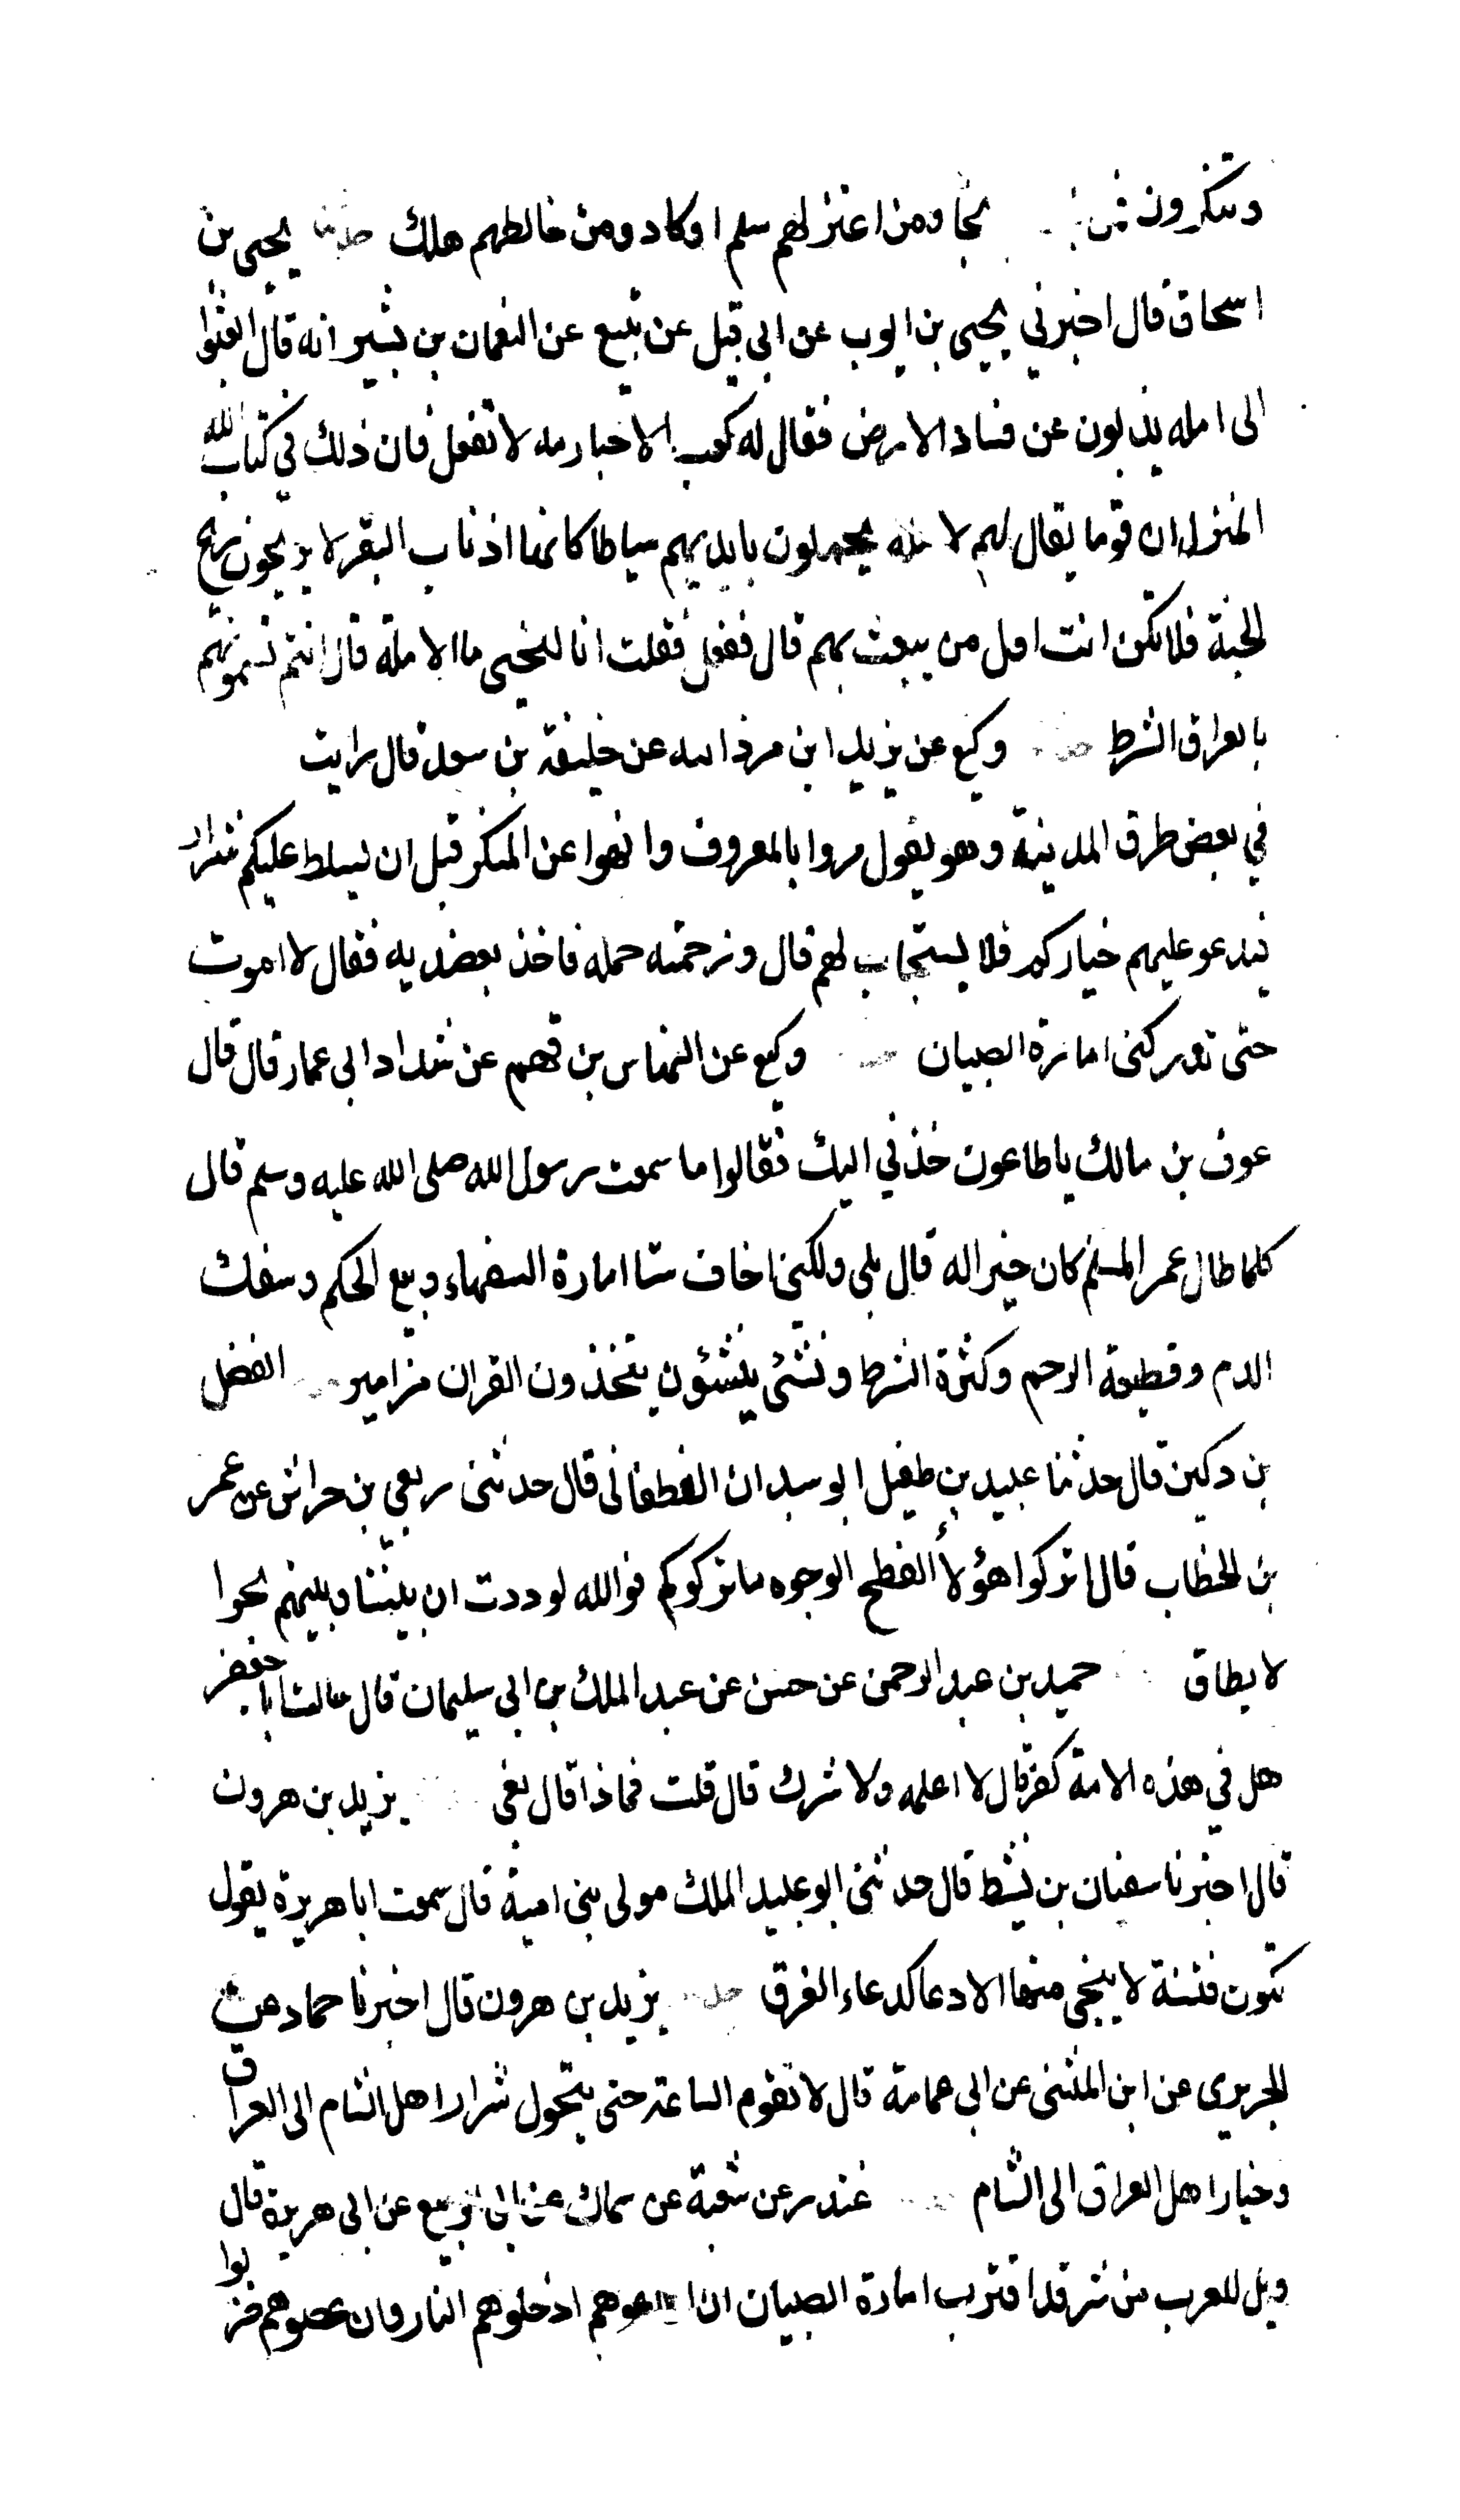 وتنكرون نجا ومن اعتزلهم سلم او كاد ومن خالطهم هلك يحيى بن
اسحاق قال اخبرني يحيى بن ايوب عن ابي قبيل عن تبيع عن النعمان بن بشير انه قال ابعثوا
الى امله يذبلون عن فساد الارض فقال له كعب الاحبار مه لا تفعل فان ذلك في كتاب الله
المنزل ان قوما يقال لهم يحملون بايديهم سياطا كانها اذناب البقر لا يريحون ريح
الجنة فلا تكن انت اول من يبعث بهم قال ففعل فقلت انا ليحيى ما الامله قال انتم تسمونهم
بالعراق الشرط وكيع عن يزيد ابن مرذ عن خليفة بن سعد قال رايت
في بعض طرق المدينة وهو يقول مروا بالمعروف وانهوا عن المنكر قبل ان يسلط عليكم شرار
فيدعو عليهم خياركم فلا يستجاب لهم قال وزحمته حمله فاخذ بعضديه فقال لا اموت
حتى تدركنى امارة الصبيان وكيع عن النهاس بن قهم عن شداد ابي عمار قال قال
عوف بن مالك ياطاعون خذني اليك فقالوا ما سمعت رسول الله صلى الله عليه وسلم قال
كلما طال عمر المسلم كان خيرا له قال بلى ولكني اخاف ستا امارة السفهاء وبيع الحكم وسفك
الدم وقطيعة الرحم وكثرة الشرط ونشئ ينشئون يتخذون القران مزامير الفضل
بن دكين قال حدثنا عبيد بن طفيل ابو سيدان الغطفاني قال حدثنى ربعي بن حراش عن عمر
بن الخطاب قال اتركوا هؤلاء الفطح الوجوه ما تركوكم فوالله لوددت ان بيننا وبينهم بحرا
لا يطاق حميد بن عبد الرحمن عن حسن عن عبد الملك بن ابي سليمان قال سالت ابا جعفر
هل في هذه الامة كفر قال لا اعلمه ولا شرك قال قلت فماذا قال بغي يزيد بن هرون
قال اخبرنا سفيان بن نشيط قال حدثنى ابو عبيد الملك مولى بني امية قال سمعت ابا هريرة يقول
تكون فتنة لا ينجى منها الا دعا كدعاء الغرق يزيد بن هرون قال اخبرنا حماد عن
الجريرى عن ابن المثنى عن ابي عمامة قال لا تقوم الساعة حتى يتحول شرار اهل الشام الى العراق
وخيار اهل العراق الى الشام غندر عن شعبة عن سماك عن ابي الربيع عن ابي هريرة قال
ويل للعرب من شر قد اقترب امارة الصبيان ان ادخلوهم النار وان عصوهم ضربوا